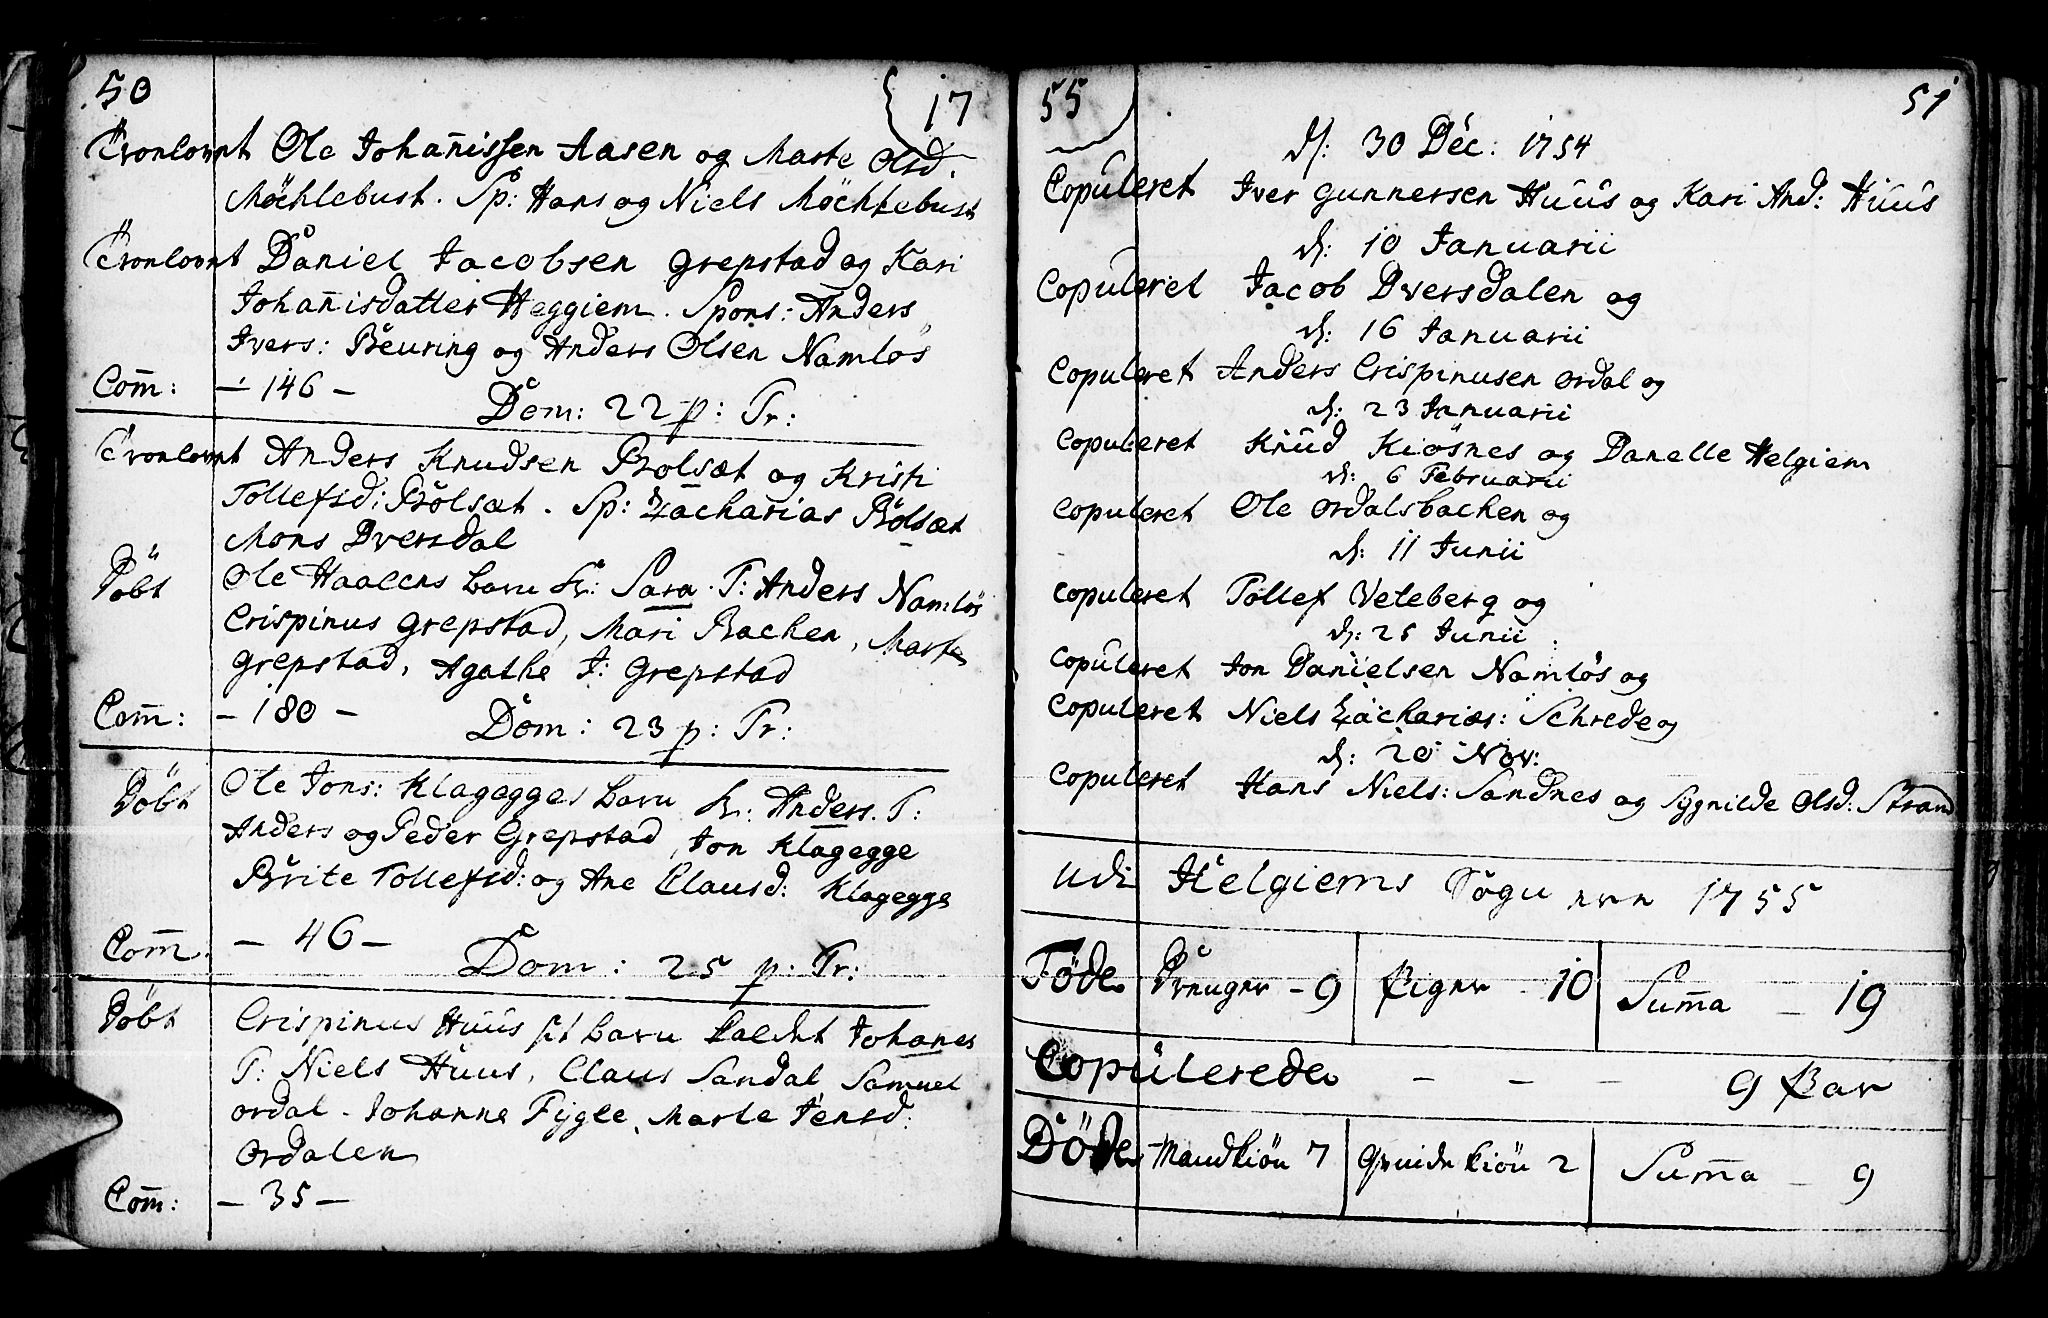 50
17
Tronlovet Ole Johañissen Aasen og Marte Olsd.
Möchlebust. Sp: Hans og Niels Möchlebust
Tronlovet Daniel Jacobsen Grepstad og Kari
Johañisdatter Heggiem. Spons: Anders
Ivers: Beuring og Anders Olsen Namlös
Com̄: — 146 —
Dom: 22 p: Tr:
Tronlovet Anders Knudsen Bolsæt og Kristi
Tollefsd: Bölsæt. Sp: Zacharias Bölsæt
Mons Dversdal
Döbt Ole Haalens barn k: Sara. T: Anders Namlös
Crispinus Grepstad, Mari Bachen, Marte
Grepstad, Agathe I: Grepstad
Com̄: — 180 —
Dom: 23 p: Tr:
Döbt Ole Jons: Klagegges barn k: Anders. T:
Anders og Peder Grepstad, Jon Klagegge
Brite Tollefsd: og Ane Clausd: Klagegge
Com̄. — 46 —
Dom: 25 p: Tr:
Döbt Crispinus Huus sit barn kaldet Johanes
T: Niels Huus, Claus Sandal Samuel
Ordal. Johanne Fygle, Marte Jensd:
Ordalen
Com̄: — 35 —
55
51
d: 30 Dec: 1754
Copuleret Iver Gunnersen Huus og Kari And: Huus
d: 10 Januarii
Copuleret Jacob Dversdalen og
d: 16 Januarii
Copuleret Anders Crispinusen Ordal og
d: 23 Januarii
Copuleret Knud Kiösnes og Danelle Helgiem
d: 6 Februarii
Copuleret Ole Ordalsbachen og
d: 11 Junii
Copuleret Tollef Veteberg og
d: 25 Junii
Copuleret Jon Danielsen Namlös og
Copuleret Niels Zacharias: Schrede og
d: 20 Nov:
Copuleret Hans Niels: Sandnes og Sygnilde Olsd: Strand
Udi Helgiems Sogn 1755
Föde Drenger - 9 Piger - 10 Sum̄a — 19
Copulerede — — — 9 Par
Döde Mandkiön 7 Qvindekiön 2 Sum̄a — 9